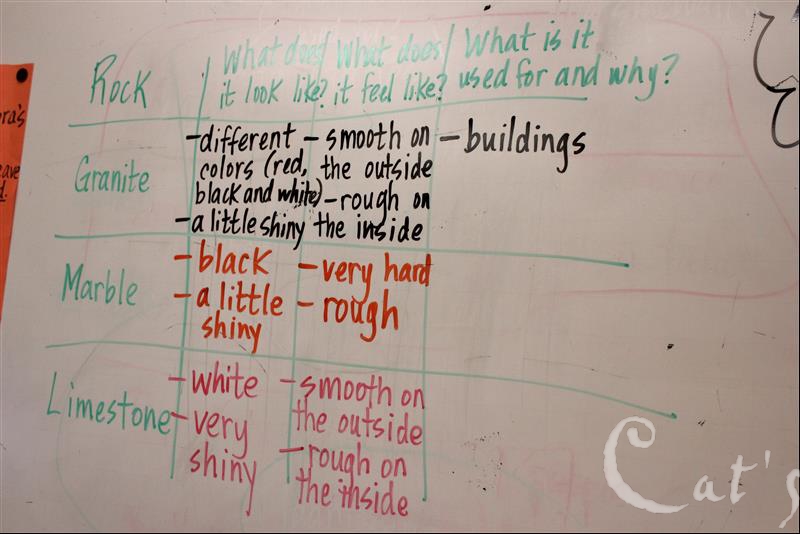 Rock
What does
it look like?
What does
it feel like?
What is it
used for and why?
Granite
- different
colors (red,
black and white)
- a little shiny
- smooth on
the outside
- rough on
the inside
- buildings
Marble
- black
- a little
shiny
- very hard
- rough
Limestone
- white
- very
shiny
- smooth on
the outside
- rough on
the inside
Cat's